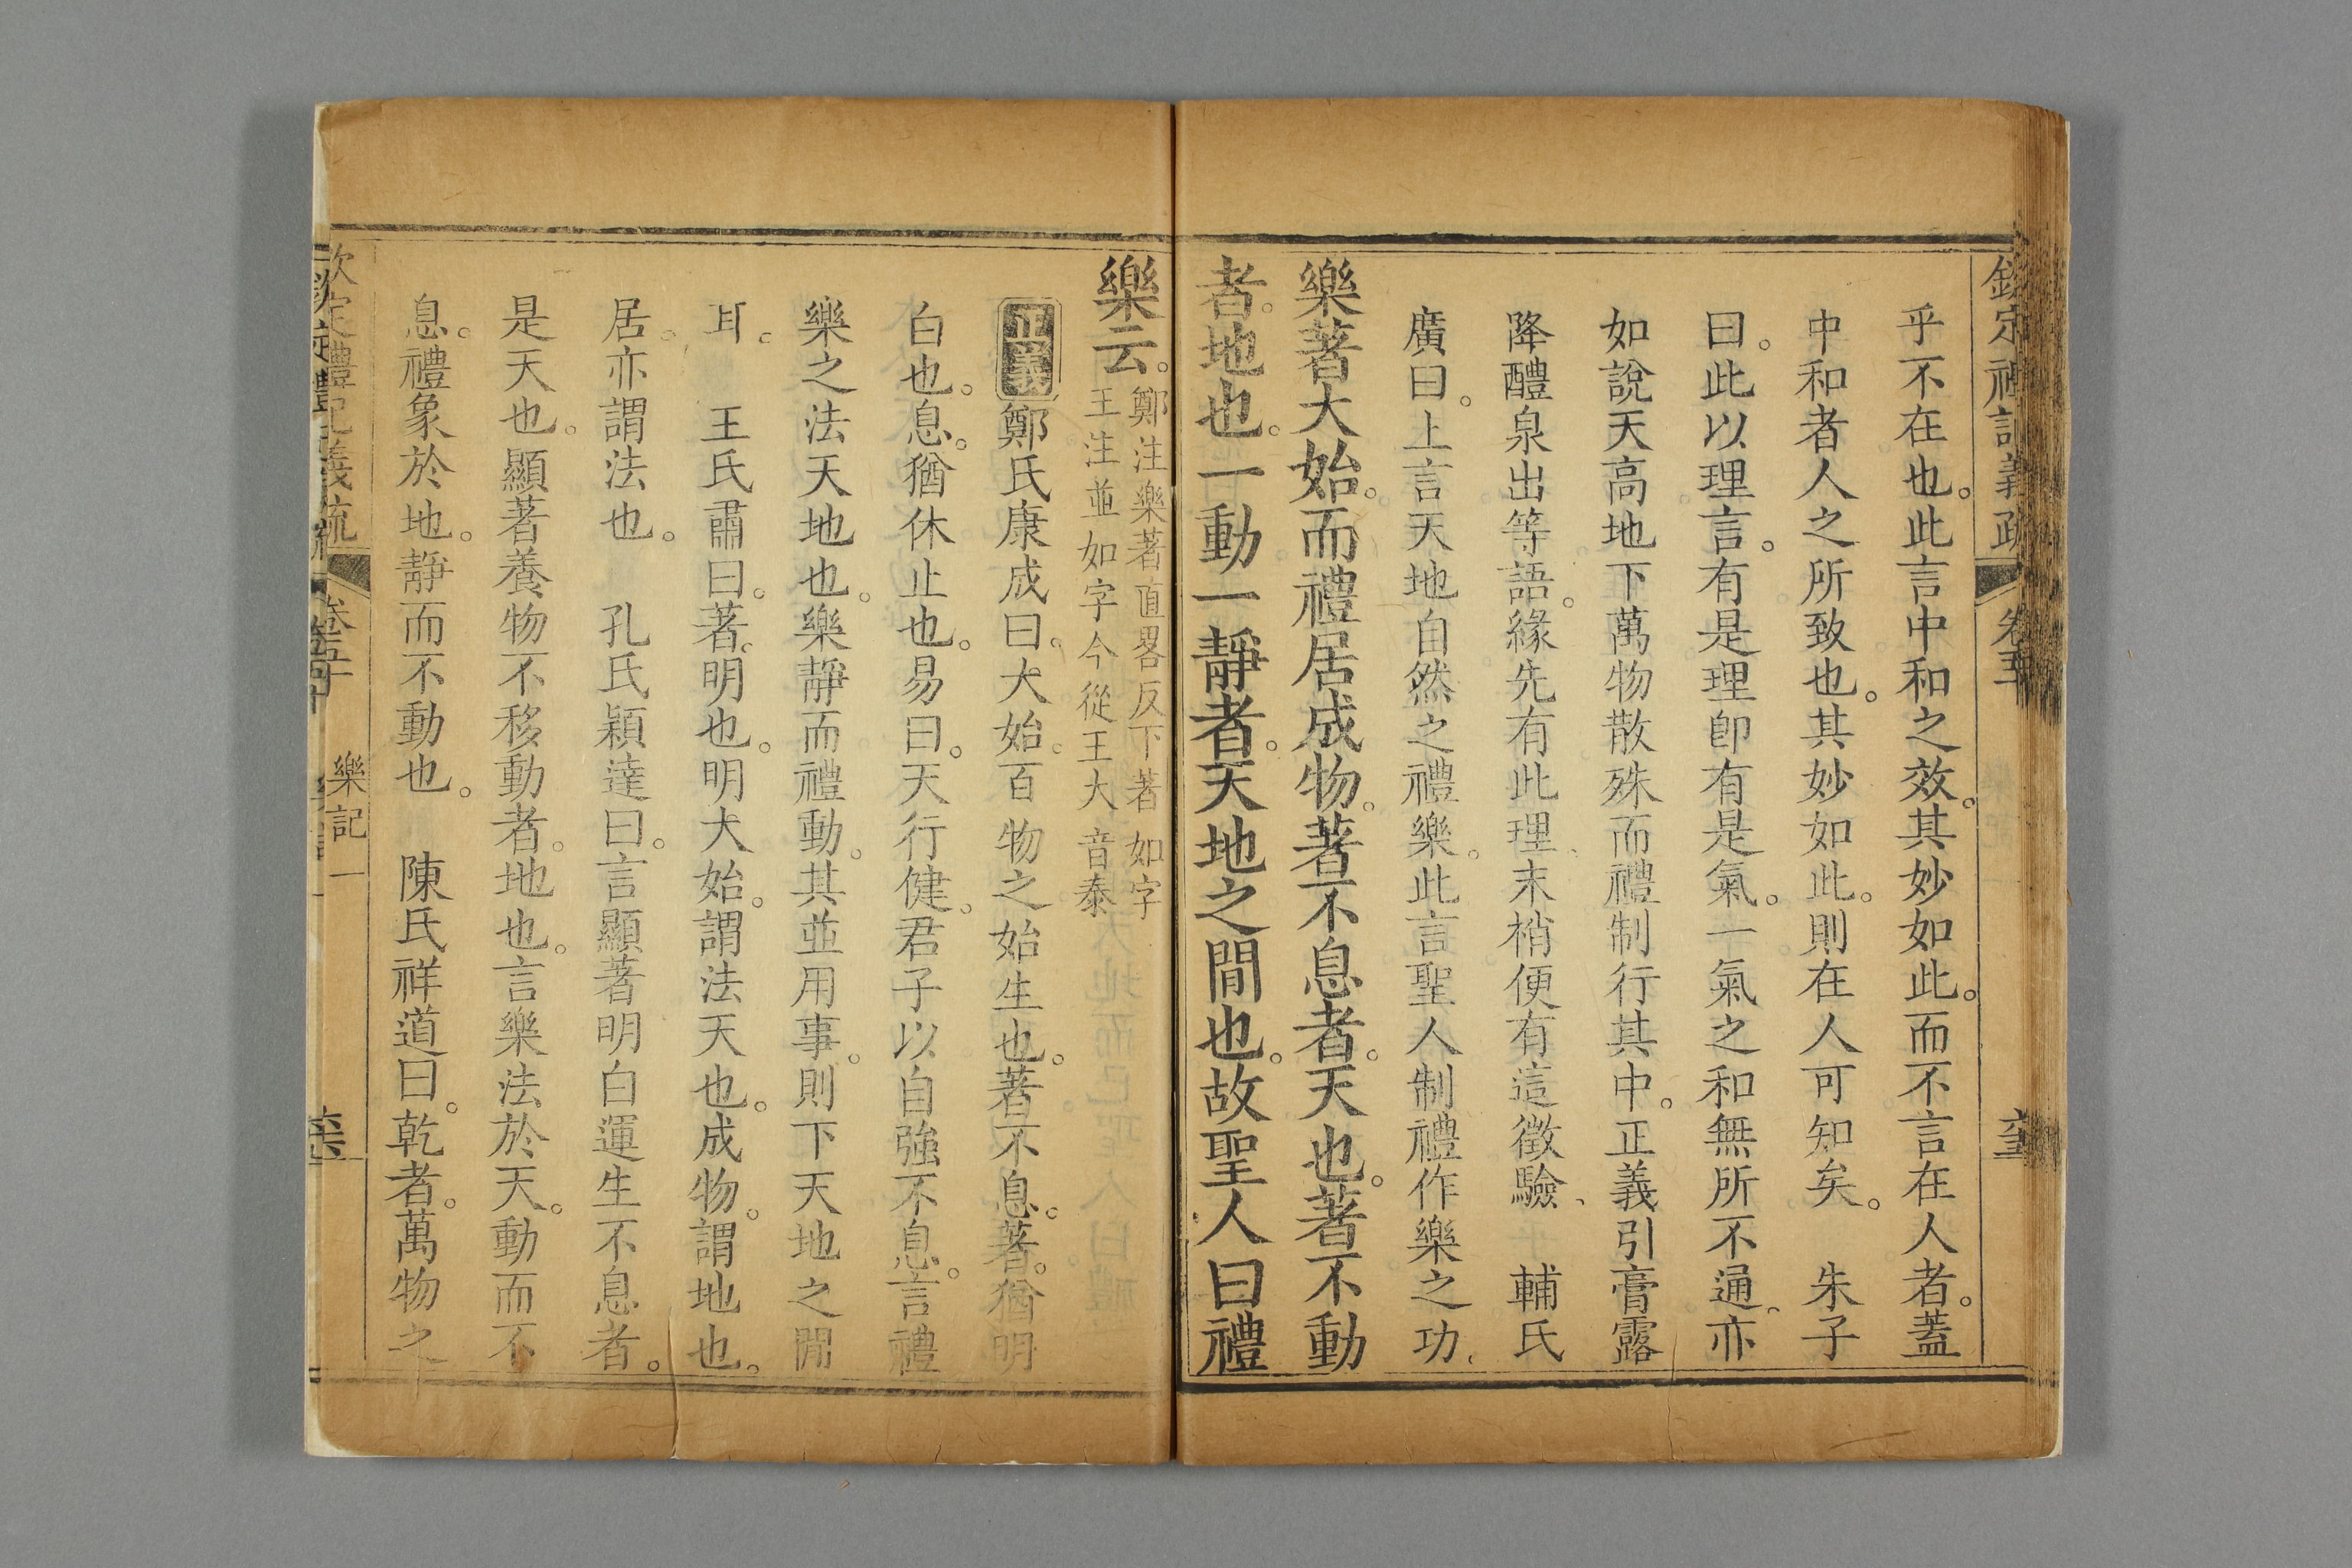 欽定禮記義疏 卷五十 六十五
乎不在也。此言中和之效。其妙如此。而不言在人者。蓋
中和者人之所致也。其妙如此。則在人可知矣。 朱子
曰。此以理言。有是理卽有是氣。一氣之和無所不通。亦
如說天高地下萬物散殊而禮制行其中。正義引膏露
降醴泉出等語。緣先有此理、末梢便有這徵驗、 輔氏
廣曰。上言天地自然之禮樂。此言聖人制禮作樂之功、
樂著大始。而禮居成物。著不息者。天也。著不動
者。地也。一動一靜者。天地之閒也。故聖人曰禮
樂云。
鄭注樂著直畧反下著如字
王注並如字今從王大音泰
正義 鄭氏康成曰。大始。百物之始生也。著不息。著。猶明
白也。息。猶休止也。易曰。天行健。君子以自強不息。言禮
樂之法天地也。樂靜而禮動。其並用事。則下天地之閒
耳。 王氏肅曰。著。明也。明大始。謂法天也。成物。謂地也。
居。亦謂法也。 孔氏穎達曰。言顯著明白運生不息者。
是天也。顯著養物不移動者。地也。言樂法於天。動而不
息。禮象於地。靜而不動也。 陳氏祥道曰。乾者。萬物之
欽定禮記義疏 卷五十 樂記一